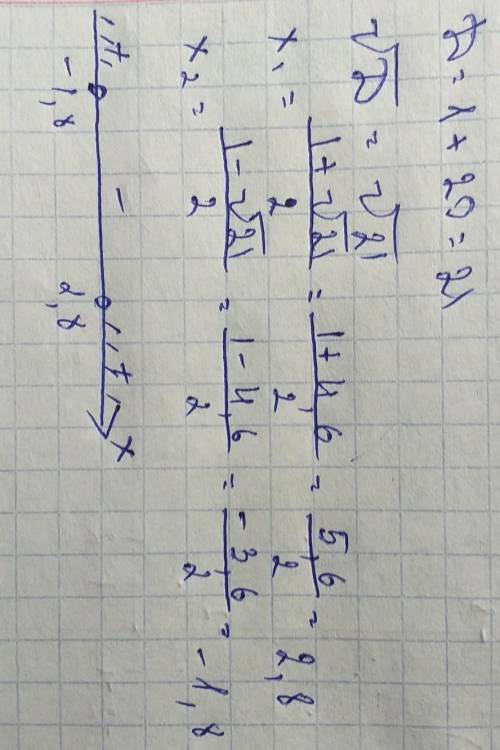 D = 1 + 20 = 21
√D = √21
x₁ = (1+√21)/2 = (1+4,6)/2 = 5,6/2 = 2,8
x₂ = (1-√21)/2 = (1-4,6)/2 = -3,6/2 = -1,8
+ - + x
-1,8 2,8